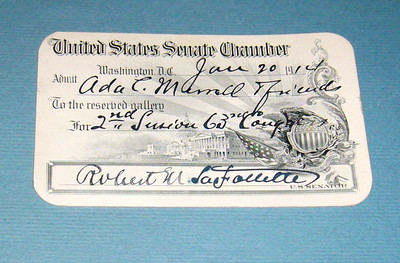 United States Senate Chamber
Washington D.C. Jan 20 1914
Admit Ada C. Murrell & friends
To the reserved gallery
For 2nd Session 63rd Cong
Robert M. La Follette
U.S. SENATOR